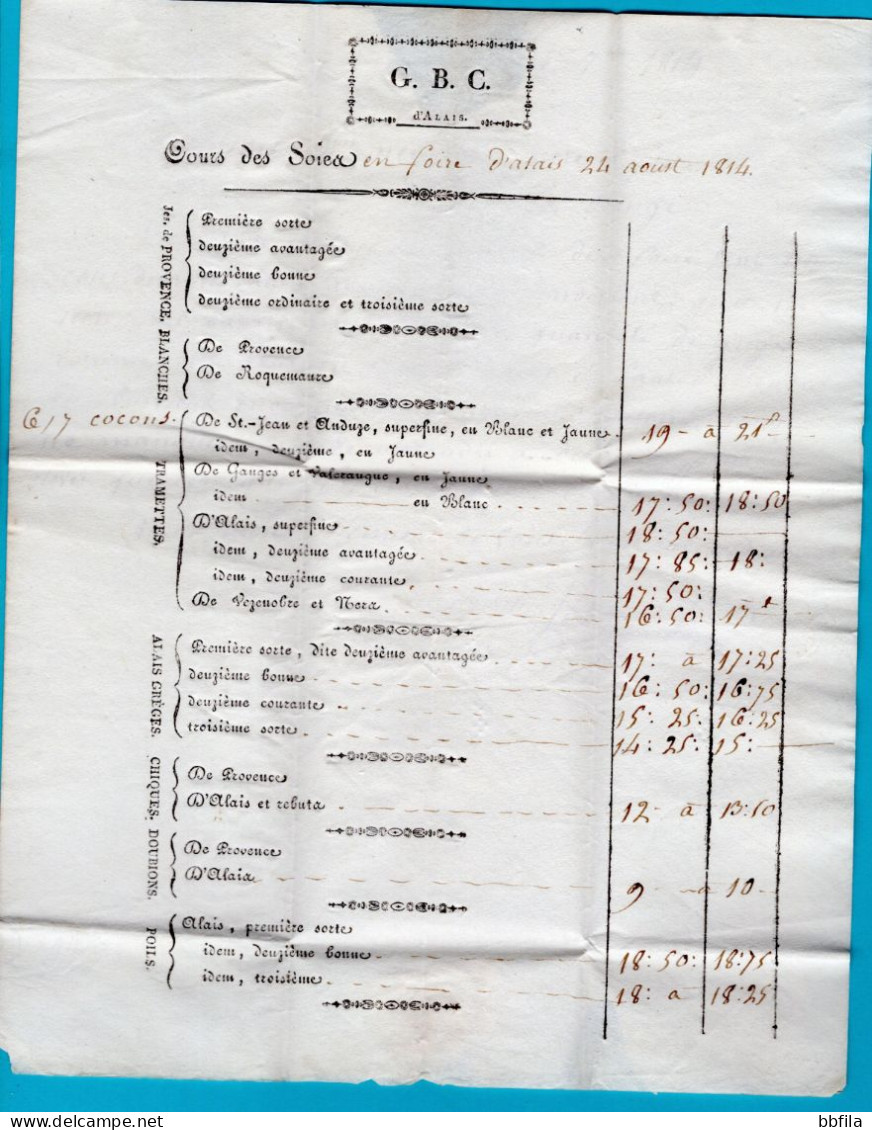 G. B. C.
d'ALAIS.
Cours des Soies en foire d'alais 24 aoust 1814.
Jes. de PROVENCE.
Première sorte
deuzième avantagée
deuzième bonne
deuzième ordinaire et troisième sorte
BLANCHES.
De Provence
De Roquemaure
6/7 cocons.
TRAMETTES.
De St.-Jean et Anduze, superfine, en Blanc et Jaune 19 - à 21f
idem, deuzième, en Jaune
De Ganges et Valeraugue, en Jaune
idem en Blanc 17:50: 18:50
D'Alais, superfine 18:50:
idem, deuzième avantagée 17:85: 18:
idem, deuzième courante 17:50:
De Vezenobre et Ners 16:50: 17
ALAIS GRÈGES.
Première sorte, dite deuzième avantagée 17: à 17:25
deuzième bonne 16:50: 16:75
deuzième courante 15:25: 16:25
troisième sorte 14:25: 15:
CHIQUES.
De Provence
D'Alais et rebuts 12 à 13:50
DOUBIONS.
De Provence
D'Alais 9 - à 10 -
POILS.
Alais, première sorte
idem, deuzième bonne 18:50: 18:75
idem, troisième 18: à 18:25
bbfila